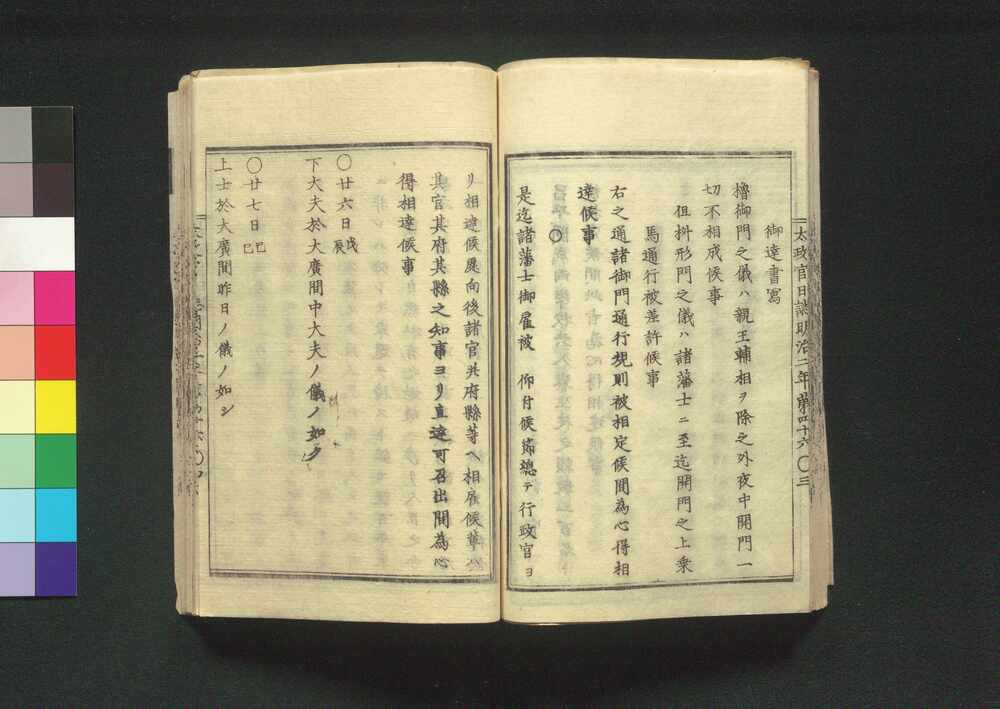 太政官日誌明治二年第四十六 〇三
御達書寫
櫓御門之儀ハ親王輔相ヲ除之外夜中開門一
切不相成候事
但枡形門之儀ハ諸藩士ニ至迄開門之上乗
馬通行被差許候事
右之通諸御門通行規則被相定候間為心得相
達候事
〇
是迄諸藩士御雇被 仰付候節總テ行政官ヨ
リ相達候處向後諸官共府縣等ヘ相雇候輩ハ
其官其府其縣之知事ヨリ直達可召出間為心
得相達候事
〇廿六日戊辰
下大夫於大廣間中大夫ノ儀ノ如ク
〇廿七日己巳
上士於大廣間昨日ノ儀ノ如シ